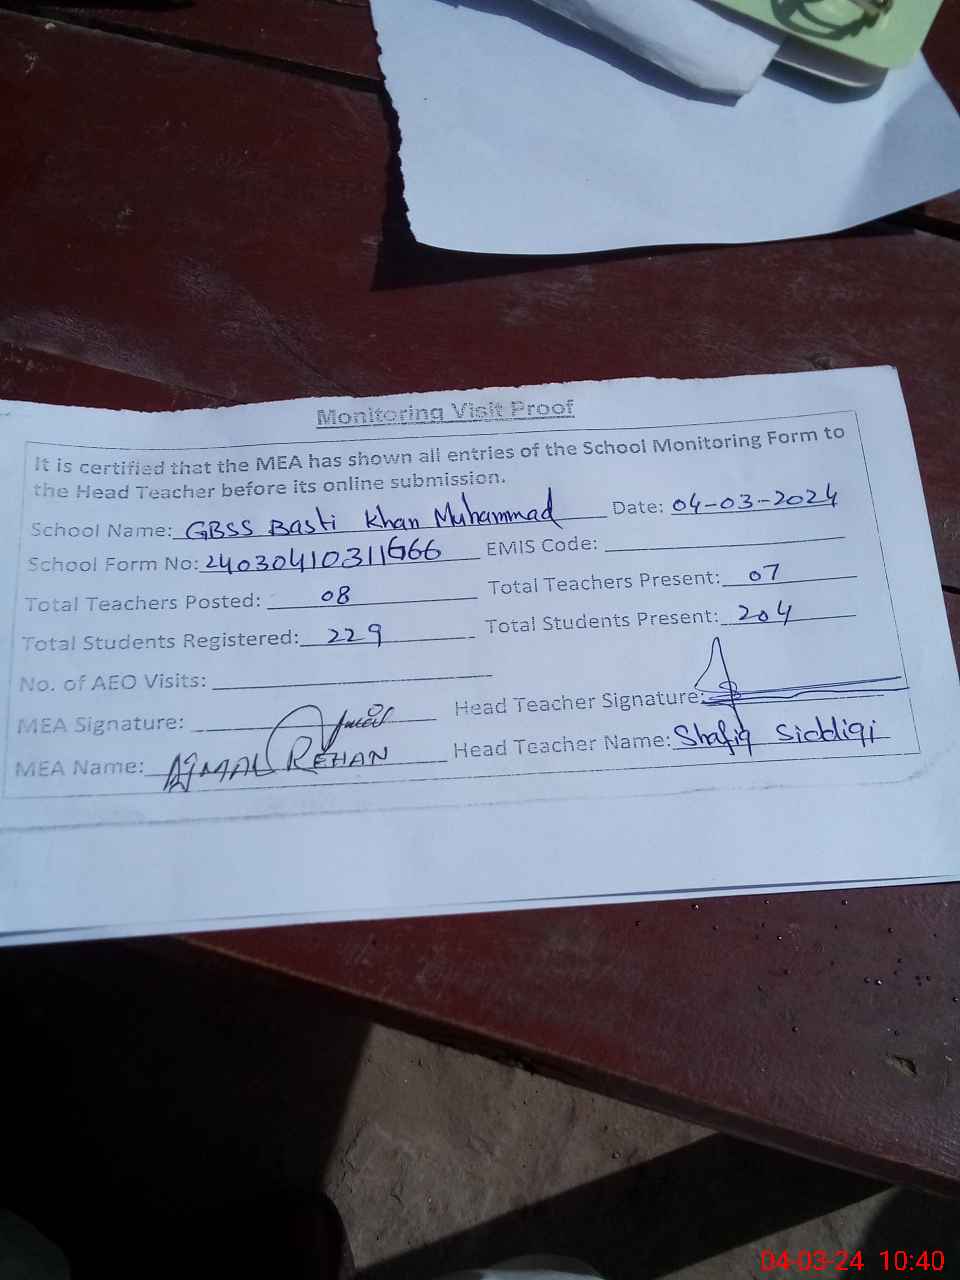 Monitoring Visit Proof
It is certified that the MEA has shown all entries of the School Monitoring Form to
the Head Teacher before its online submission.
School Name: GBSS Basti Khan Muhammad Date: 04-03-2024
School Form No: 24030410311666 EMIS Code:
Total Teachers Posted: 08 Total Teachers Present: 07
Total Students Registered: 229 Total Students Present: 204
No. of AEO Visits:
MEA Signature: Head Teacher Signature:
MEA Name: AJMAL REHAN Head Teacher Name: Shafiq Siddiqi
04-03-24 10:40